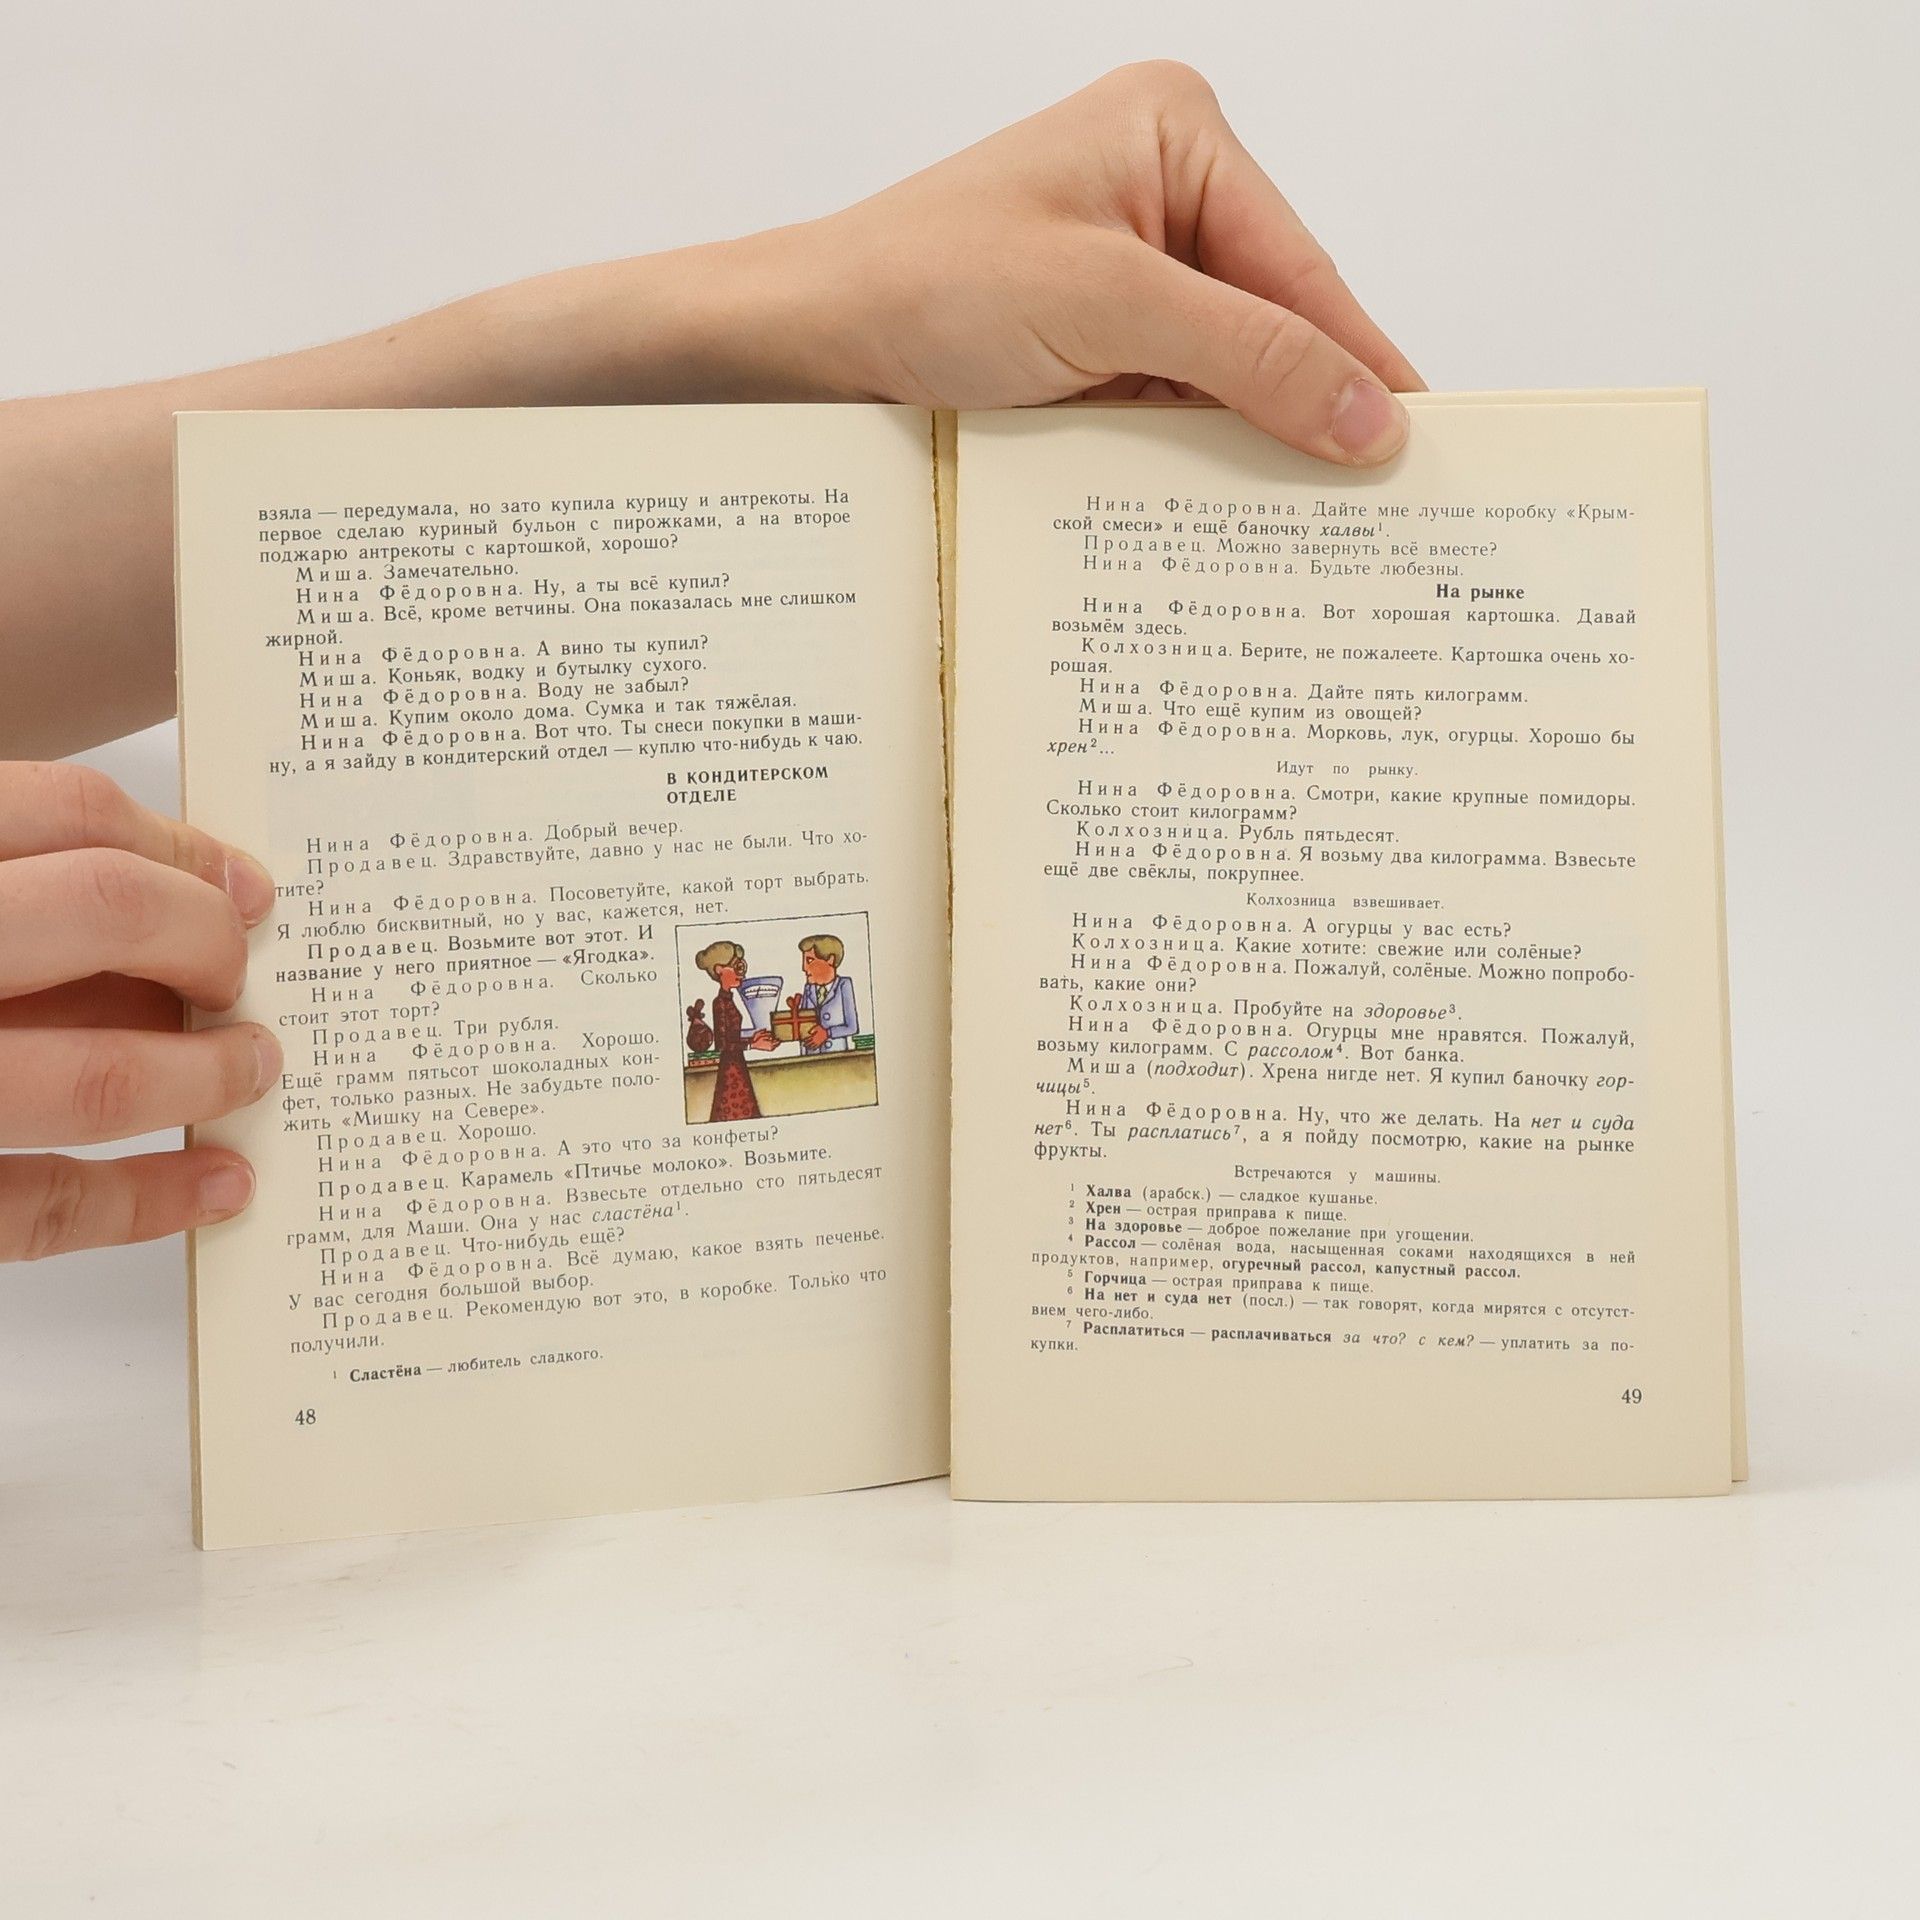 взяла — передумала, но зато купила курицу и антрекоты. На
первое сделаю куриный бульон с пирожками, а на второе
поджарю антрекоты с картошкой, хорошо?
Миша. Замечательно.
Нина Фёдоровна. Ну, а ты всё купил?
Миша. Всё, кроме ветчины. Она показалась мне слишком
жирной.
Нина Фёдоровна. А вино ты купил?
Миша. Коньяк, водку и бутылку сухого.
Нина Фёдоровна. Воду не забыл?
Миша. Купим около дома. Сумка и так тяжёлая.
Нина Фёдоровна. Вот что. Ты снеси покупки в маши-
ну, а я зайду в кондитерский отдел — куплю что-нибудь к чаю.
В КОНДИТЕРСКОМ
ОТДЕЛЕ
Нина Фёдоровна. Добрый вечер.
Продавец. Здравствуйте, давно у нас не были. Что хо-
тите?
Нина Фёдоровна. Посоветуйте, какой торт выбрать.
Я люблю бисквитный, но у вас, кажется, нет.
Продавец. Возьмите вот этот. И
название у него приятное — «Ягодка».
Нина Фёдоровна. Сколько
стоит этот торт?
Продавец. Три рубля.
Нина Фёдоровна. Хорошо.
Ещё грамм пятьсот шоколадных кон-
фет, только разных. Не забудьте поло-
жить «Мишку на Севере».
Продавец. Хорошо.
Нина Фёдоровна. А это что за конфеты?
Продавец. Карамель «Птичье молоко». Возьмите.
Нина Фёдоровна. Взвесьте отдельно сто пятьдесят
грамм, для Маши. Она у нас сластёна¹.
Продавец. Что-нибудь ещё?
Нина Фёдоровна. Всё думаю, какое взять печенье.
У вас сегодня большой выбор.
Продавец. Рекомендую вот это, в коробке. Только что
получили.
¹ Сластёна — любитель сладкого.
48
Нина Фёдоровна. Дайте мне лучше коробку «Крым-
ской смеси» и ещё баночку халвы¹.
Продавец. Можно завернуть всё вместе?
Нина Фёдоровна. Будьте любезны.
На рынке
Нина Фёдоровна. Вот хорошая картошка. Давай
возьмём здесь.
Колхозница. Берите, не пожалеете. Картошка очень хо-
рошая.
Нина Фёдоровна. Дайте пять килограмм.
Миша. Что ещё купим из овощей?
Нина Фёдоровна. Морковь, лук, огурцы. Хорошо бы
хрен²...
Идут по рынку.
Нина Фёдоровна. Смотри, какие крупные помидоры.
Сколько стоит килограмм?
Колхозница. Рубль пятьдесят.
Нина Фёдоровна. Я возьму два килограмма. Взвесьте
ещё две свёклы, покрупнее.
Колхозница взвешивает.
Нина Фёдоровна. А огурцы у вас есть?
Колхозница. Какие хотите: свежие или солёные?
Нина Фёдоровна. Пожалуй, солёные. Можно попробо-
вать, какие они?
Колхозница. Пробуйте на здоровье³.
Нина Фёдоровна. Огурцы мне нравятся. Пожалуй,
возьму килограмм. С рассолом⁴. Вот банка.
Миша (подходит). Хрена нигде нет. Я купил баночку гор-
чицы⁵.
Нина Фёдоровна. Ну, что же делать. На нет и суда
нет⁶. Ты расплатись⁷, а я пойду посмотрю, какие на рынке
фрукты.
Встречаются у машины.
¹ Халва (арабск.) — сладкое кушанье.
² Хрен — острая приправа к пище.
³ На здоровье — доброе пожелание при угощении.
⁴ Рассол — солёная вода, насыщенная соками находящихся в ней
продуктов, например, огуречный рассол, капустный рассол.
⁵ Горчица — острая приправа к пище.
⁶ На нет и суда нет (посл.) — так говорят, когда мирятся с отсутст-
вием чего-либо.
⁷ Расплатиться — расплачиваться за что? с кем? — уплатить за по-
купки.
49